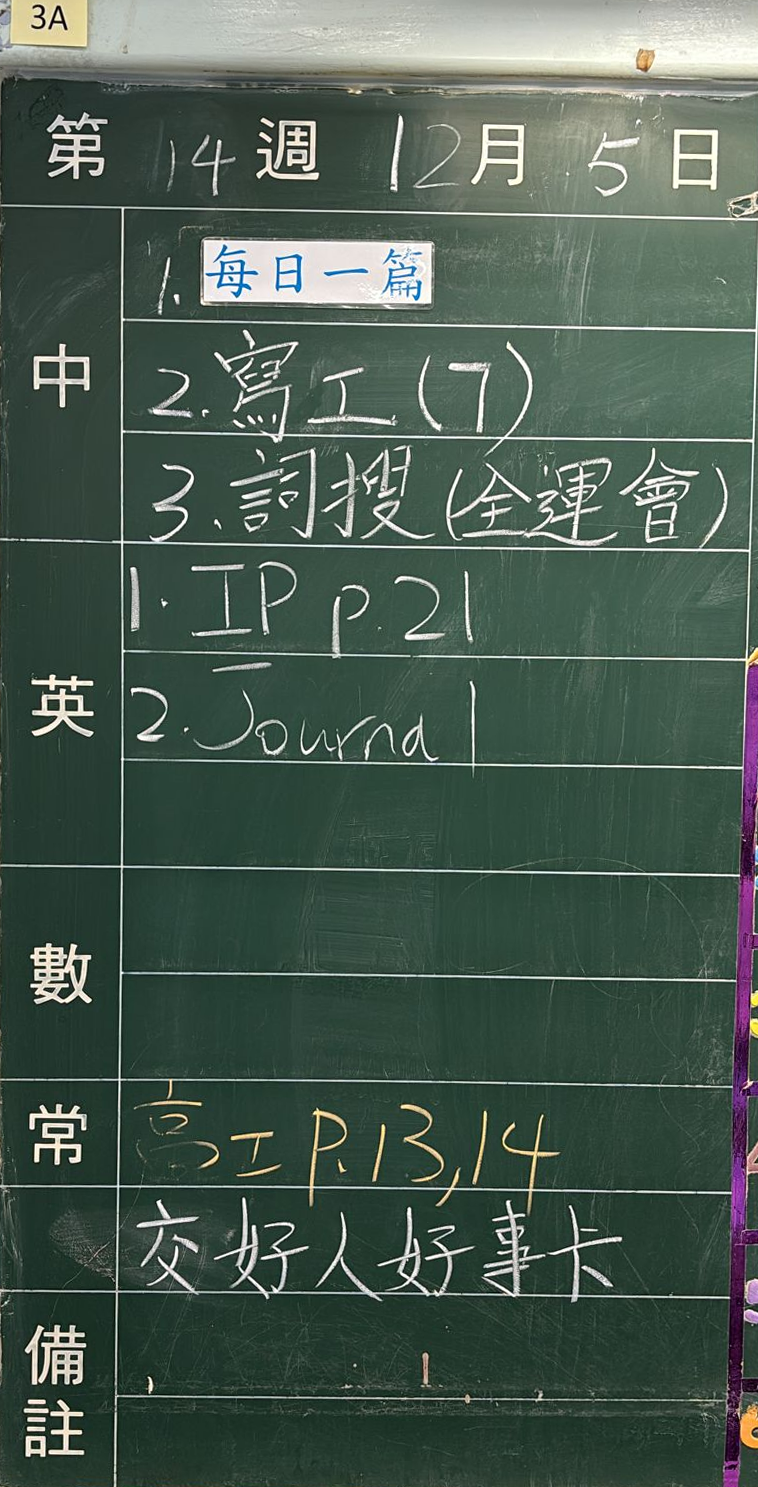 3A
第 14 週 12月 5 日
中
1. 每日一篇
2. 寫工(7)
3. 詞搜(全運會)
英
1. IP p.21
2. Journal
數
常
高工 P.13,14
交好人好事卡
備註